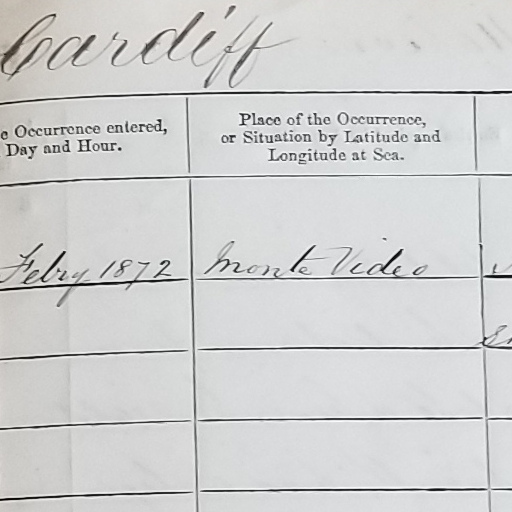 Cardiff
e Occurrence entered,
Day and Hour.
Place of the Occurrence,
or Situation by Latitude and
Longitude at Sea.
Febry 1872
Monte Video